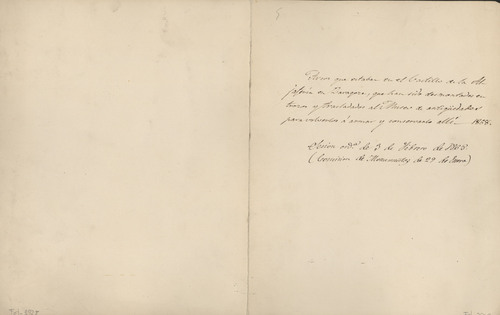 5
que estaban en el Castillo de la Al
jaferia en Zaragoza, que han sido desmontados en
trozos y trasladados al Museo de antigüedades
para volverlos á armar y conservarlo allí. 1868.
Sesión ordª. de 3 de Febrero de
(Comision de Monumentos de 29 de Enero)